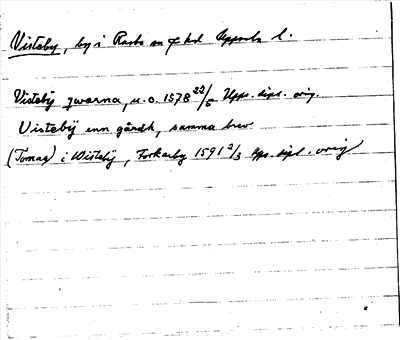 Visteby, by i Rasbo sn o. hd Uppsala l.
Vistebÿ zwarna, u. o. 1578 22/5 Upps. dipl. orig.
Vistebÿ enn gårdh, samma brev
(Tomas) i Wistebÿ, Forkarby 1591 2/3 Ups. dipl. orig